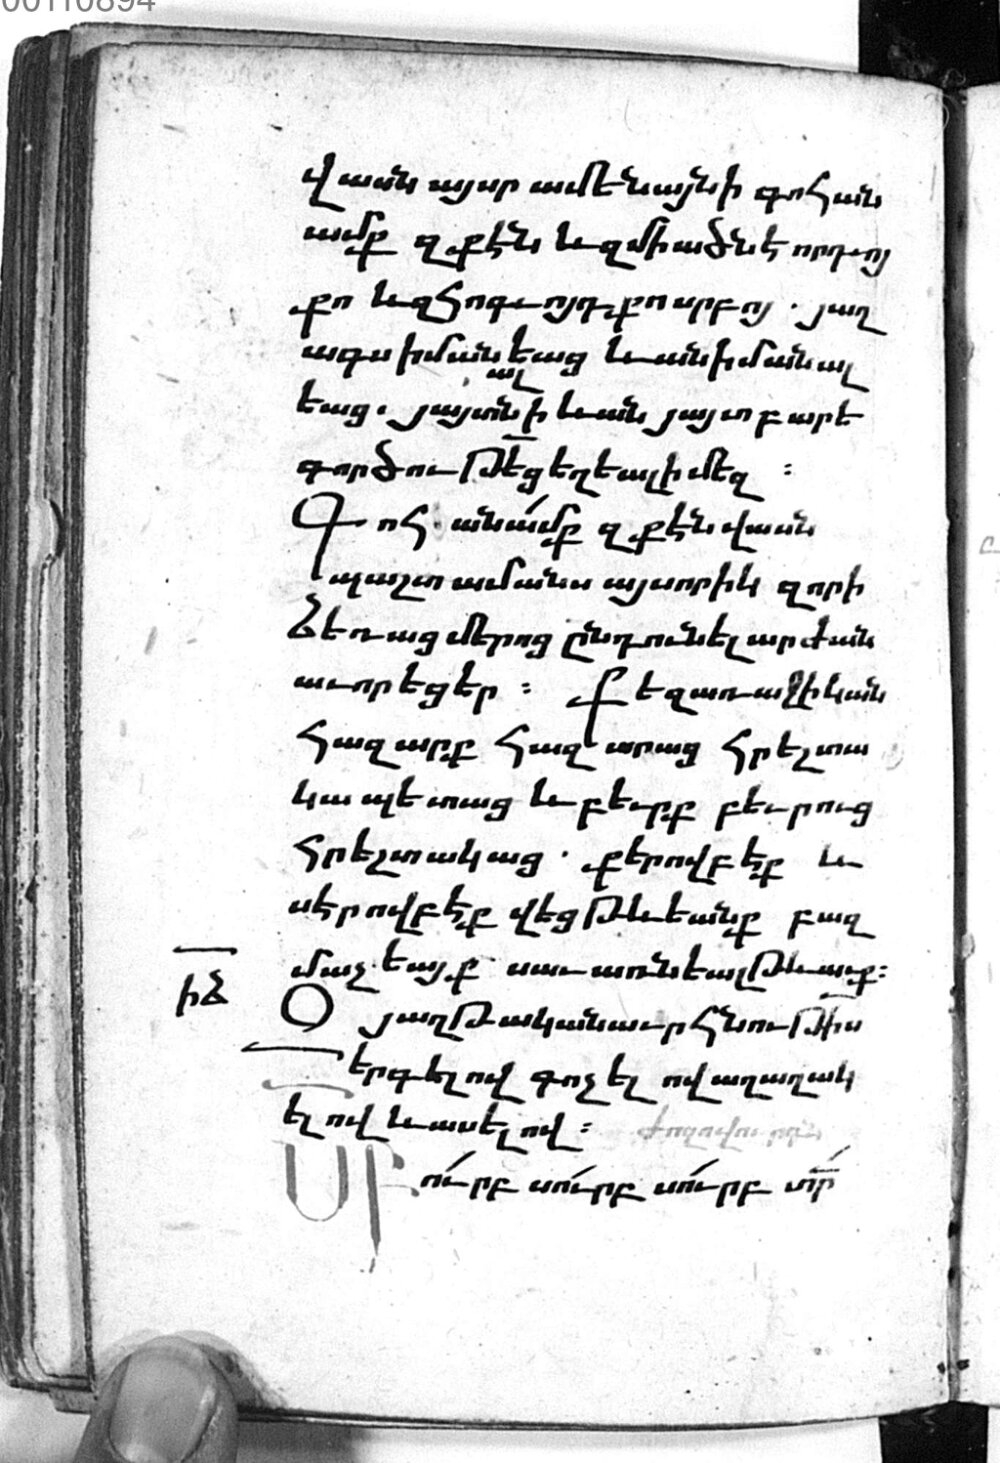 00110894
վասն այսր ամենայնի գոհան
ամք զքէն և զմիածնէ որդւոյ
քո և զհոգւոյդ քո սրբոյ . յաղ
ագս իմանեաց և անիմանալ
եաց . յայտնի և անյայտ բարե
գործութեց եղեալ ի մեզ :
Գոհանամք զքէն վասն
պաշտամանս այսորիկ զոր ի
ձեռաց մերոց ընդունել արժան
աւորեցեր : քեզ առաջի կան
հազարք հազարաց հրեշտա
կապետաց և բեւրք բեւրուց
հրեշտակաց . քերովբէք և
սերովբէք վեցթևեանք բազ
մաչեայք սաւառնեալ թևաւք :
իձ
Օ յաղթականաւր հնութիս
երգելով գոչելով աղաղակ
ելով և ասելով : ժողովուրդն
Սուրբ սուրբ սուրբ տր